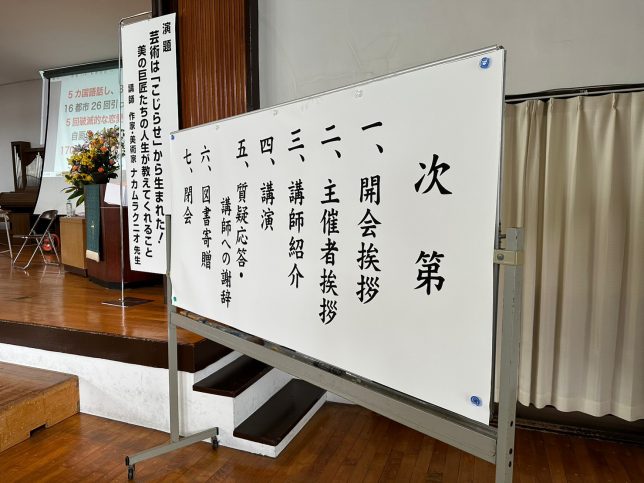 次第
一、開会挨拶
二、主催者挨拶
三、講師紹介
四、講演
五、質疑応答・
講師への謝辞
六、図書寄贈
七、閉会
演題
芸術は「こじらせ」から生まれた！
美の巨匠たちの人生が教えてくれること
講師 作家・美術家 ナカムラクニオ 先生
5カ国語話し、
16都市26回引っ
5回破滅的な恋愛